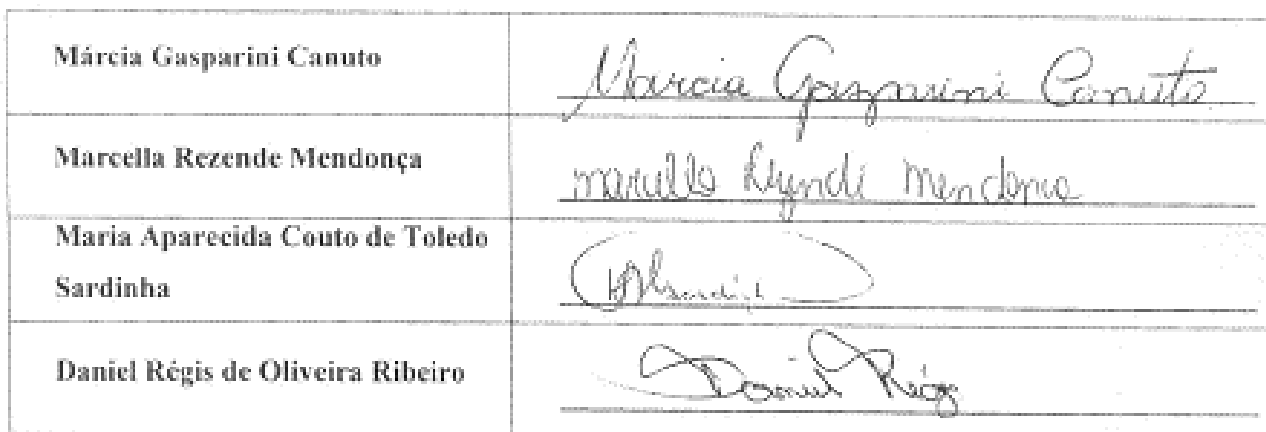 Márcia Gasparini Canuto
Marcia Gasparini Canuto
Marcella Rezende Mendonça
Marcella Mendonça
Maria Aparecida Couto de Toledo
Sardinha
Daniel Régis de Oliveira Ribeiro
Daniel Régis